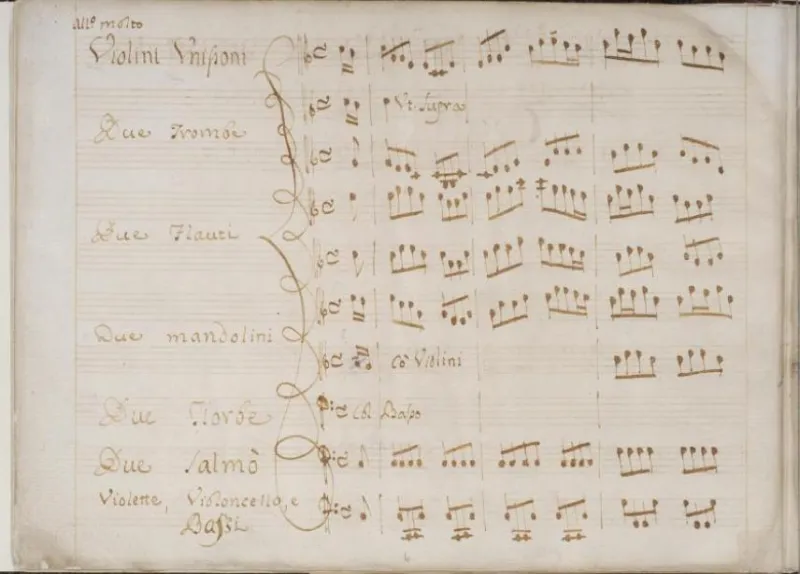 all.º molto
Violini Vnisoni
Vt. supra
Due Trombe
Due Flauti
Due mandolini
Cò Violini
Due Tiorbe
Col Basso
Due Salmò
Violette, Violoncello, e
Bassi